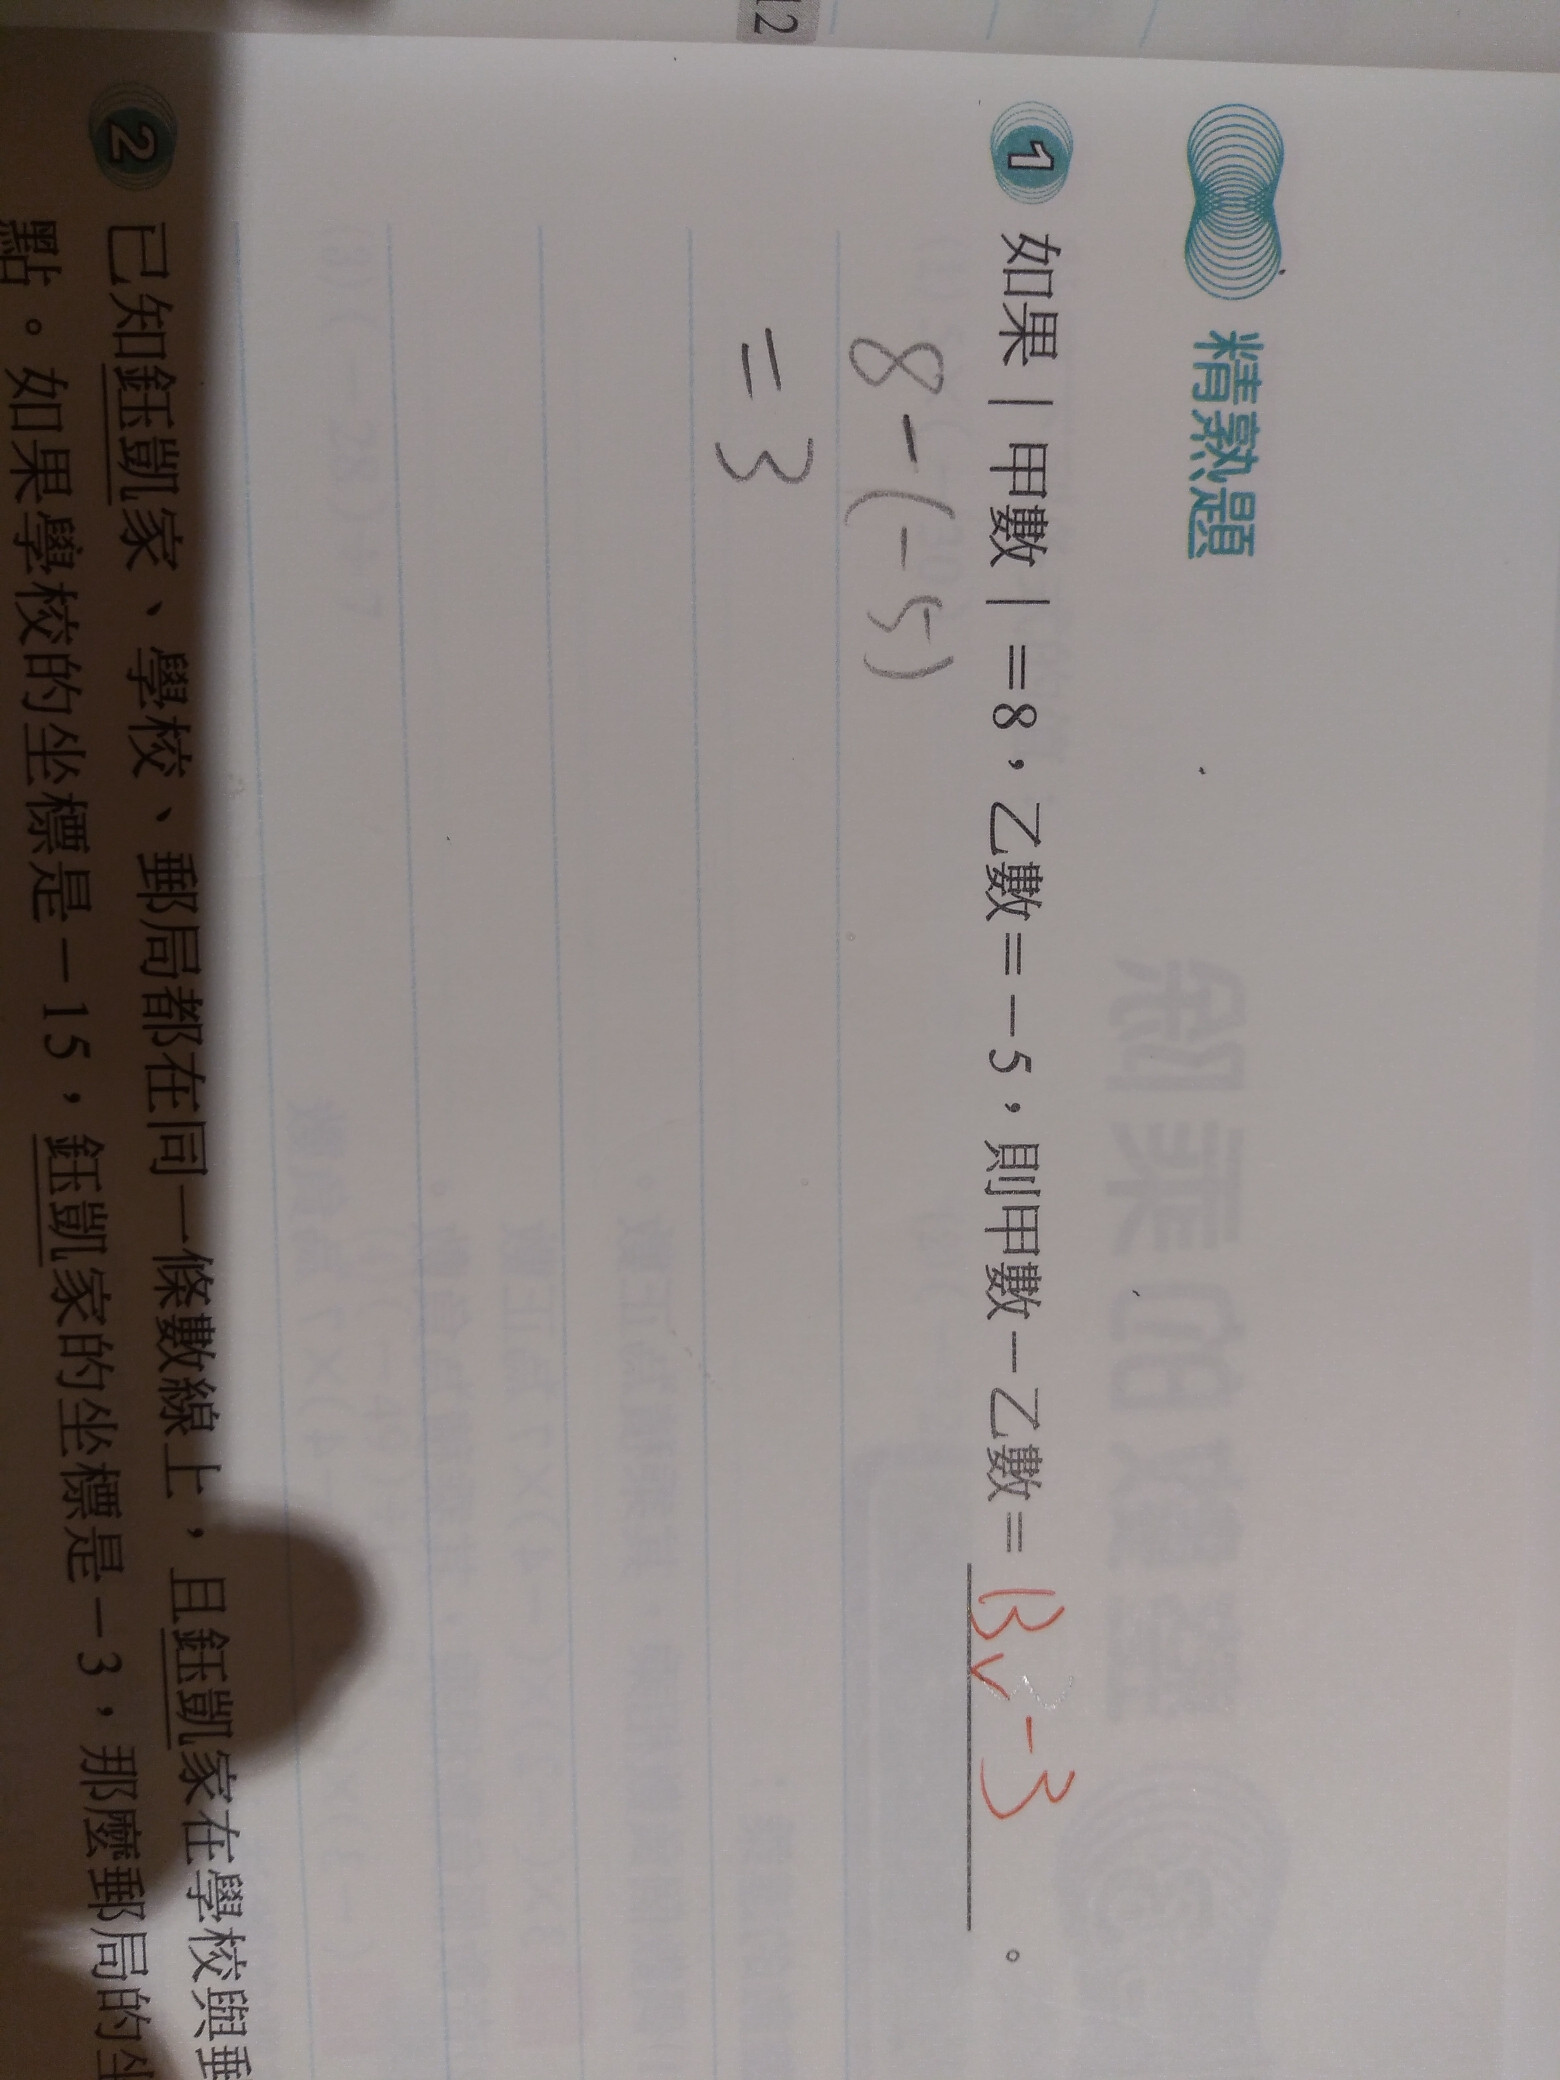 12
精熟題
1 如果｜甲數｜＝8，乙數＝－5，則甲數－乙數＝13、-3。
8-(-5)
=3
2 已知鈺凱家、學校、郵局都在同一條數線上，且鈺凱家在學校與郵
點。如果學校的坐標是－15，鈺凱家的坐標是－3，那麼郵局的坐